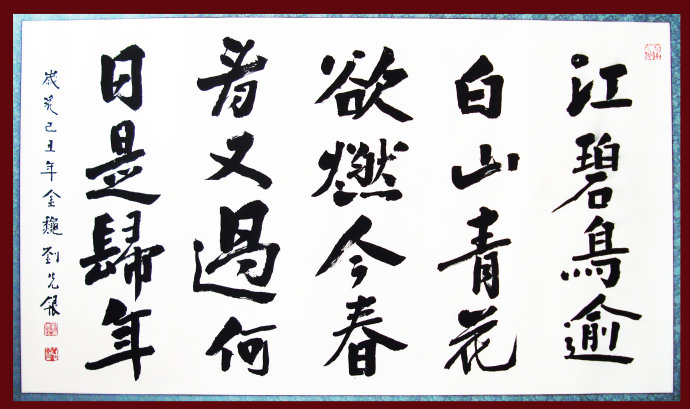 江碧鳥逾
白山青花
欲燃今春
看又過何
日是歸年
歲己丑年金龝劉先銀